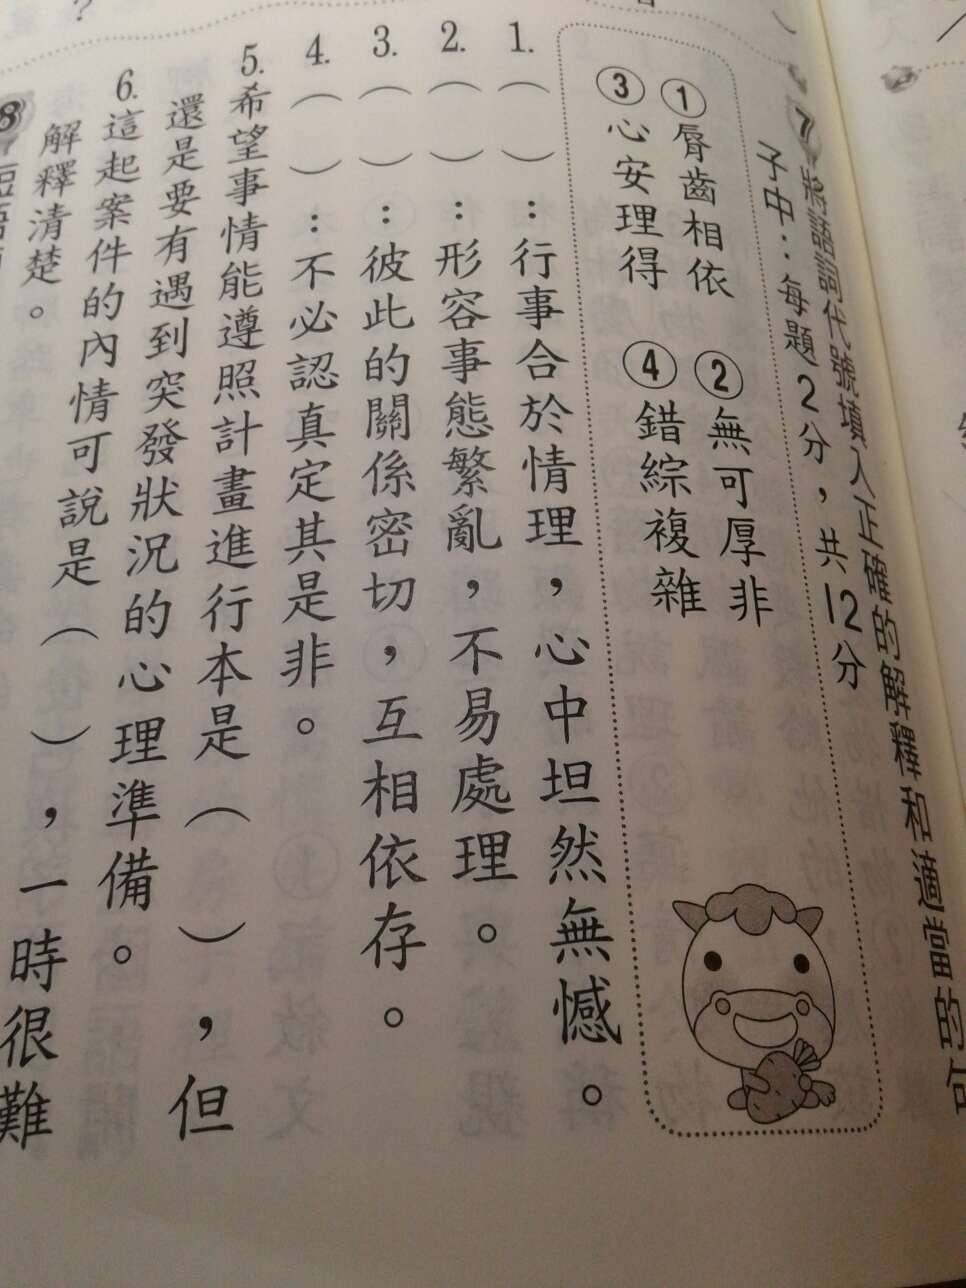 7 將語詞代號填入正確的解釋和適當的句
子中:每題2分,共12分
①脣齒相依 ②無可厚非
③心安理得 ④錯綜複雜
1.( ):行事合於情理,心中坦然無憾。
2.( ):形容事態繁亂,不易處理。
3.( ):彼此的關係密切,互相依存。
4.( ):不必認真定其是非。
5.希望事情能遵照計畫進行本是( ),但
還是要有遇到突發狀況的心理準備。
6.這起案件的內情可說是( ),一時很難
解釋清楚。
8